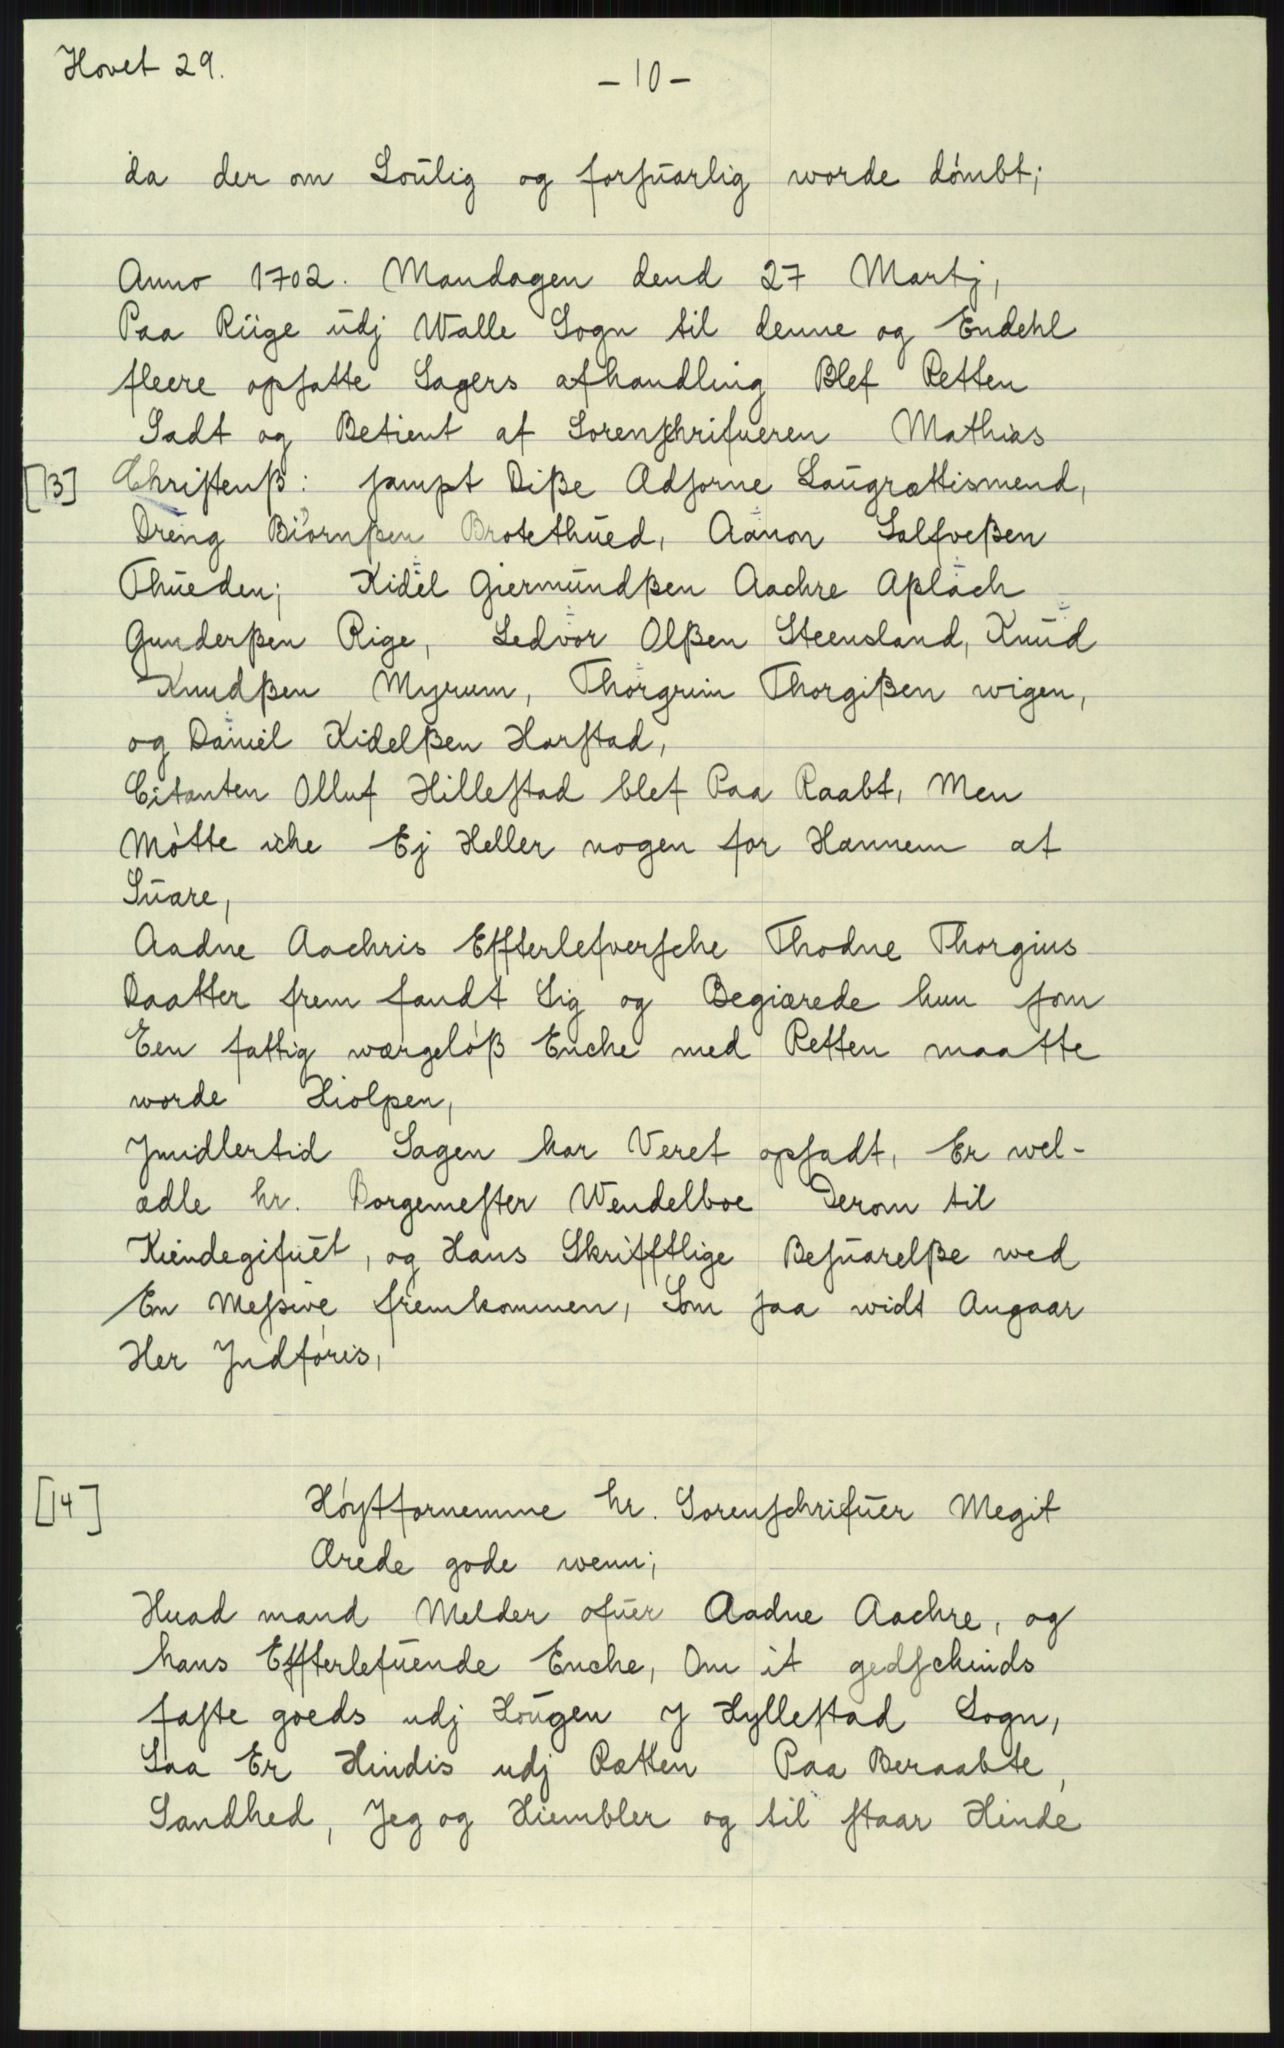 Hovet 29.
-10-
da der om Loulig og forsuarlig worde dømbt;
Anno 1702. Mandagen dend 27 Martj,
Paa Riige udj Walle Sogn til denne og Endehl
fleere opsatte Sagers afhandling Blef Retten
Sadt og Betient af Sorenschrifueren Mathias
[13] Christenß: sampt Diße Adsorne Laugrættismend,
Dreng Biørnßen Brotethued, Aanon Salfveßen
Thueden; Kidel Giermundßen Aachre Aslach
Gunderßen Rige, Ledvor Olßen Steensland, Knud
Knudßen Myrum, Thorgrim Thorgißen wigen,
og Daniel Kidelßen Harstad,
Citanten Olluf Hillestad blef Paa Raabt, Men
Møtte iche Ej Heller nogen for Hannem at
Suare,
Aadne Aachris Effterlefversche Thodne Thorgius
Daatter frem fandt Sig og Begiærede hun som
Een fattig wærgeløß Enche med Retten maatte
worde Hiolpen,
Jmidlertid Sagen har Veret opsadt, Er wel-
ædle hr. Borgemester Wendelboe Derom til
Kiendegifuet, og Hans Skrifftlige Besuarelße wed
En Messive fremkommen, Som saa widt Angaar
Her Jndføris,
[14] Høystfornemme hr. Sorenschrifuer Megit
Ærede gode wenn;
Huad mand Melder ofuer Aadne Aachre, og
hans Effterlefuende Enche, Om it gedschinds
faste goeds udj Hougen J Hyllestad Sogn,
Saa Er Hindis udj Rætten Paa Beraabte,
Sandhed, Jeg og Hiembler og til staar Hinde